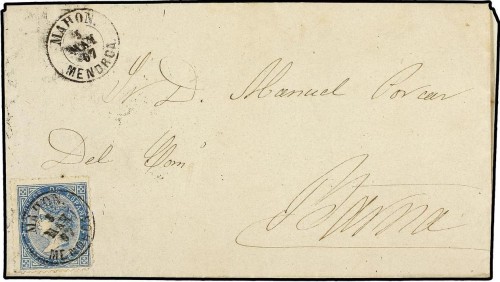 MAHON.
MAR
67
MENORCA.
Sr. D. Manuel Porcar
Del Comº
Barna
MAHON.
MENO